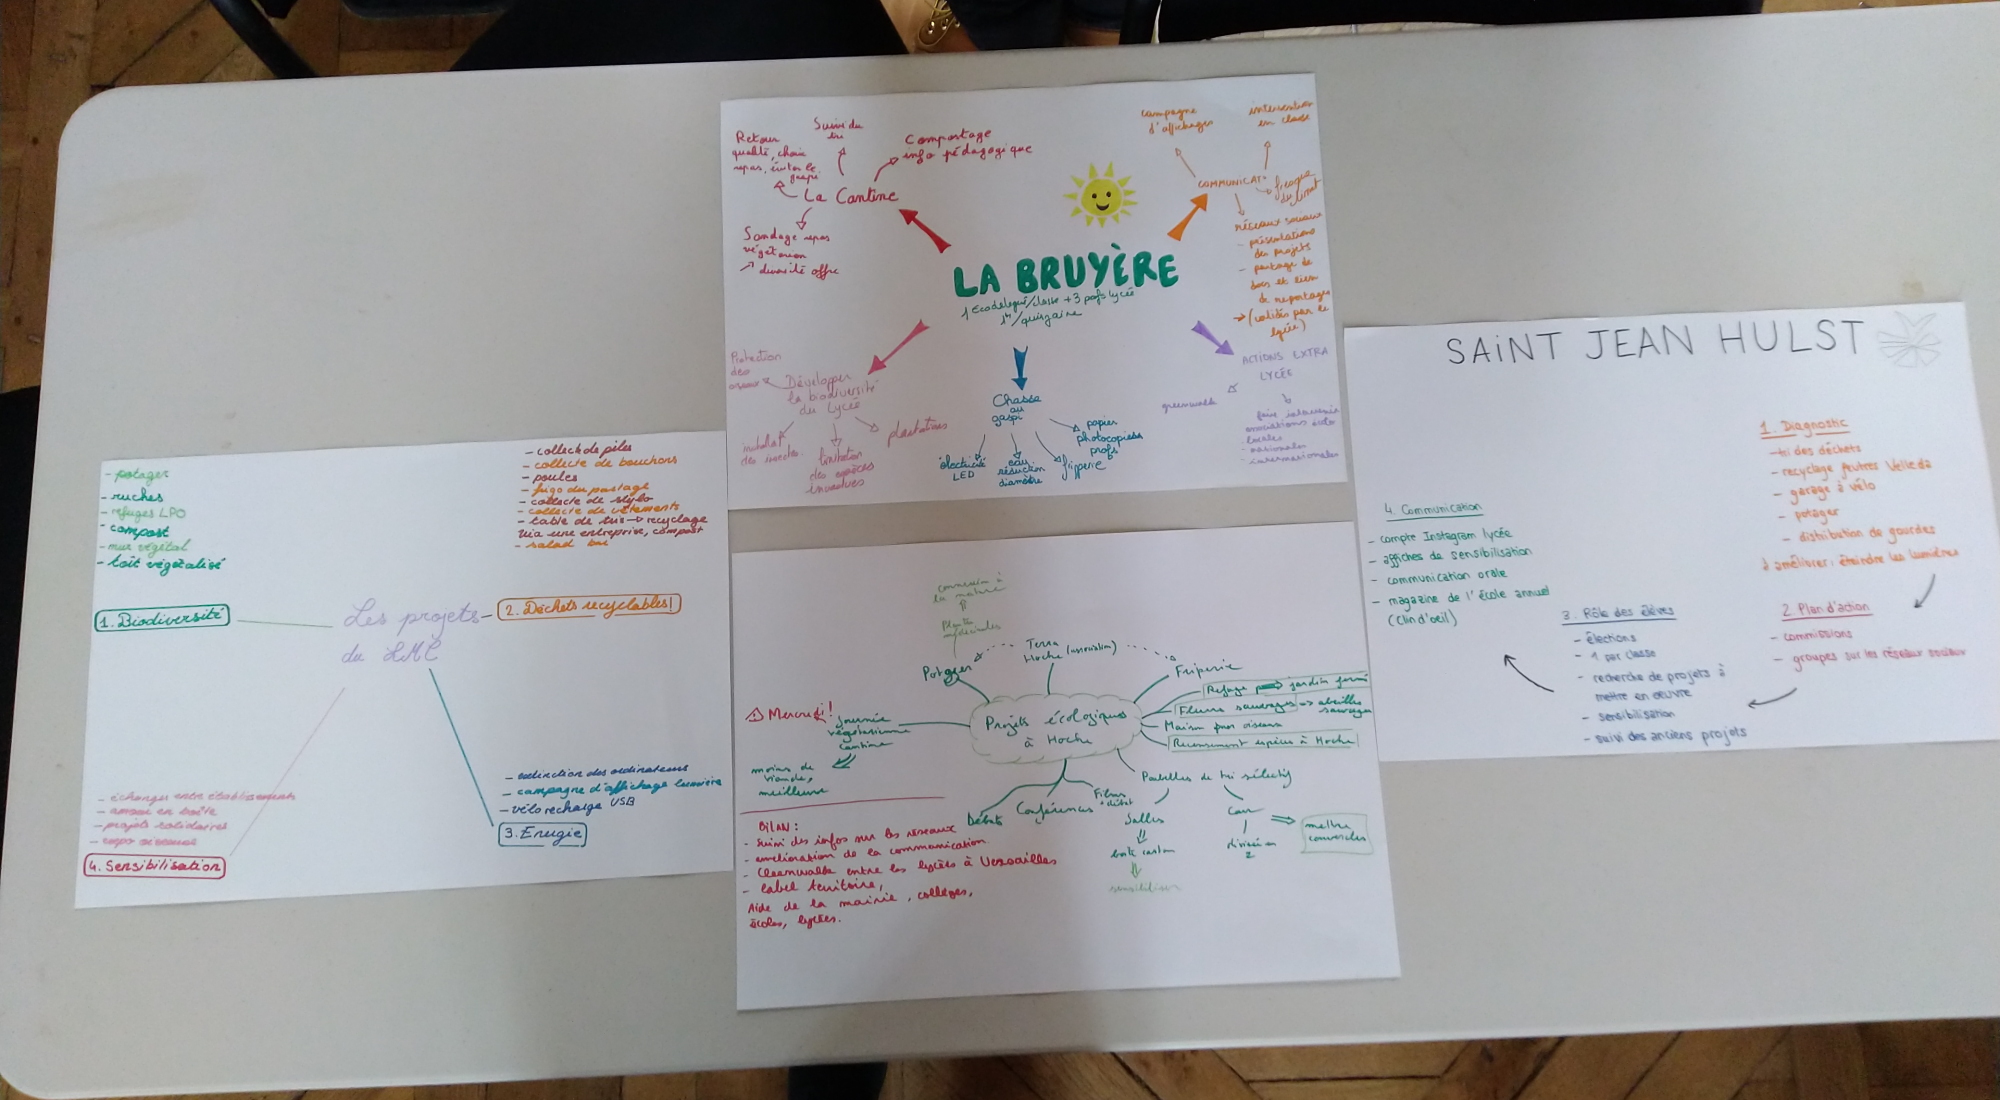 - potager
- ruches
- refuges LPO
- compost
- mur végétal
- toît végétalisé
1. Biodiversité
- collecte de piles
- collecte de bouchons
- poules
- frigo du partage
- collecte de stylo
- collecte de vêtements
- table de tri → recyclage
via une entreprise, compost
- salad bar
Les projets
du LMC
2. Déchets recyclables!
- extinction des ordinateurs
- campagne d'affichage lumière
- vélo recharge USB
3. Énergie
- échanges entre établissements
- projets solidaires
4. Sensibilisation
Retour
qualité, choix
repas, éviter le
gaspi
Suivi du
tri
Compostage
info pédagogique
La Cantine
Sondage repas
végétarien
↗ diversité offre
campagne
d'affichages
intervention
en classe
COMMUNICAT°
fresque
du climat
réseaux sociaux
- présentations
des projets
- partage de
docs et lien
de reportages
→ (validés par le
lycée)
LA BRUYÈRE
1 Ecodélégué/classe + 3 profs lycée
1h/quinzaine
Protection
des
oiseaux
Développer
la biodiversité
du Lycée
des insectes
plantations
limitation
des espèces
invasives
Chasse
au
gaspi
électricité
LED
eau
réduction
diamètre
friperie
papier
photocopies
profs
ACTIONS EXTRA
LYCÉE
greenwalk
faire intervenir
associations écolo
- locales
- nationales
- internationales
connexion à
la nature
Plantes
médicinales
Potager
Terra
Hoche (association)
Friperie
Refuge ⇒ jardin fermé
Fleurs sauvages ⇒ abeilles
sauvages
Maison pour oiseaux
Recensement espèces à Hoche
Projets écologiques
à Hoche
⚠ Mercredi!
Journée
végétarienne
cantine
moins de
viande,
meilleure
Débats
Conférences
Films
+ débat
Poubelles de tri sélectif
Salles
boîte carton
sensibiliser
Cour
divisée en
2
mettre
couvercles
BILAN:
- Suivi des infos sur les réseaux
- amélioration de la communication
- Cleanwalk entre les lycées à Versailles
- label territoire,
Aide de la mairie, collèges,
écoles, lycées.
SAiNT JEAN HULST
1. Diagnostic
- tri des déchets
- recyclage feutres Velleda
- garage à vélo
- potager
- distribution de gourdes
à améliorer: éteindre les lumières
2. Plan d'action
- commissions
- groupes sur les réseaux sociaux
3. Rôle des élèves
- élections
- 1 par classe
- recherche de projets à
mettre en œuvre
- sensibilisation
- suivi des anciens projets
4. Communication
- compte Instagram lycée
- affiches de sensibilisation
- communication orale
- magazine de l'école annuel
(Clin d'oeil)